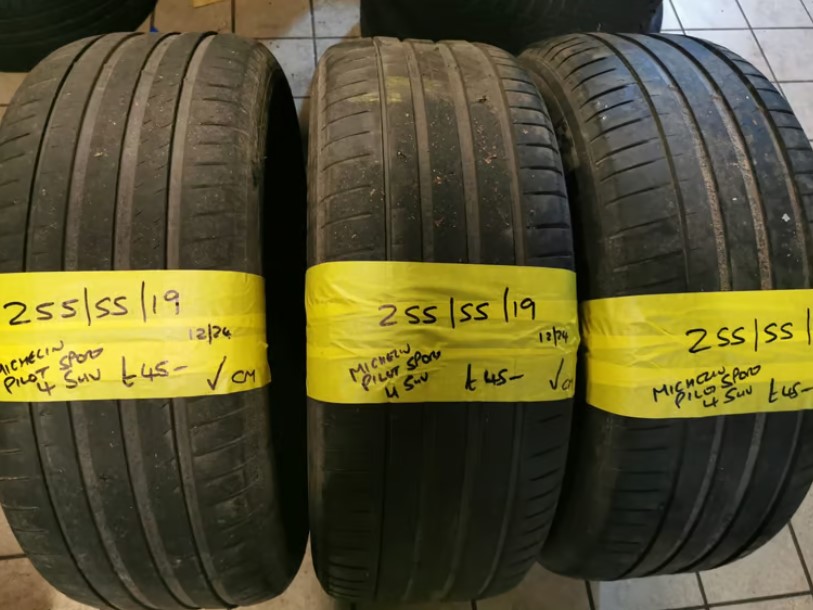 255/55/19
12/24
MICHELIN
PILOT SPORT
4 SUV
£45-
✓ CM
255/55/19
12/24
MICHELIN
PILOT SPORT
4 SUV
£45-
✓ CM
255/55/
MICHELIN
PILOT SPORT
4 SUV
£45-